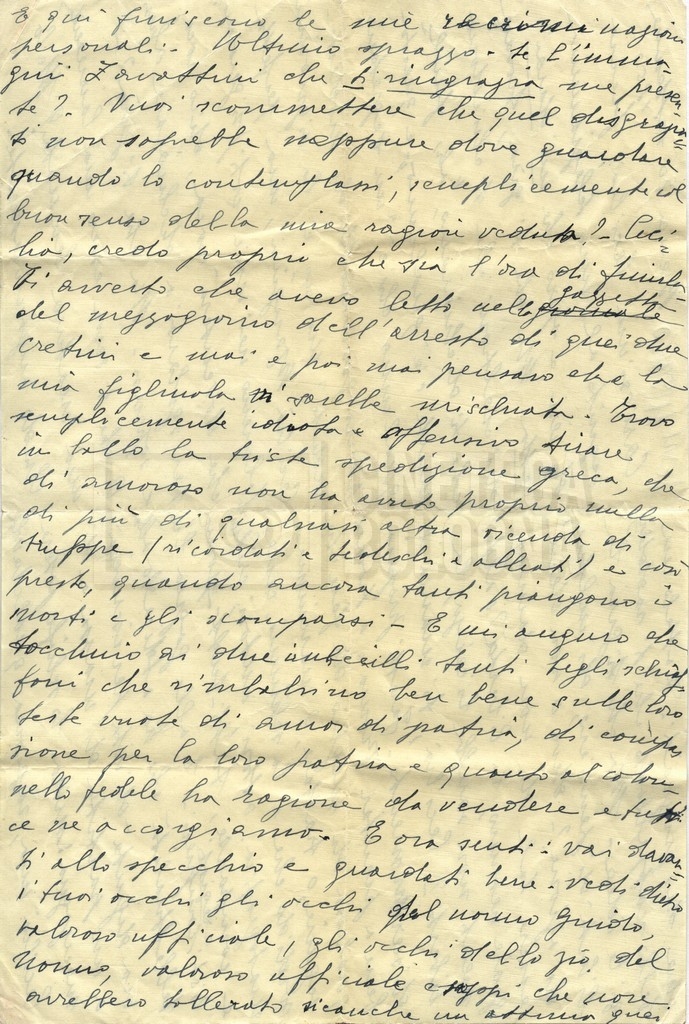 E qui finiscono le mie ragioni
personali. Ultimo sprazzo. te l'imma-
gini Zavattini che ti ringrazia me presen-
te? Vuoi scommettere che quel disgrazia-
to non saprebbe neppure dove guardare
quando lo contemplassi, semplicemente col
buon senso della mia ragion veduta? - Ceci-
lia, credo proprio che sia l'ora di finirla.
Ti avverto che avevo letto nella gazzetta
del mezzogiorno dell'arresto di quei due
cretini e mai e poi mai pensavo che la
mia figliuola vi sarebbe mischiata. Trovo
semplicemente idiota e offensivo tirare
in ballo la triste spedizione greca, che
di amoroso non ha avuto proprio nulla
di più di qualsiasi altra vicenda di
truppe (ricordati e tedeschi e alleati) e così
presto, quando ancora tanti piangono i
morti e gli scomparsi - E mi auguro che
tocchino ai due imbecilli tanti begli schiaf-
foni che rimbalzino ben bene sulle loro
teste vuote di amor di patria, di compas
sione per la loro patria e quanto al colon-
nello fedele ha ragione da vendere e tutti
ce ne accorgiamo. E ora senti: vai davan-
ti allo specchio e guardati bene. vedi dietro
i tuoi occhi gli occhi del nonno Guido,
valoroso ufficiale, gli occhi dello zio del
nonno, valoroso ufficiale che non
avrebbero tollerato neanche un attimo quei